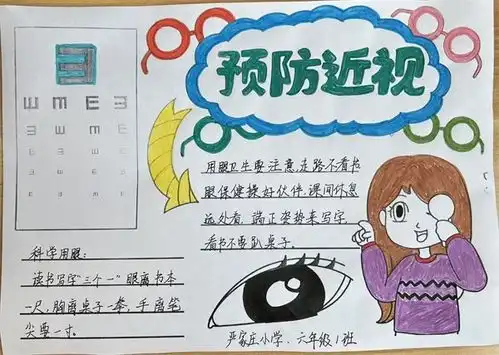 预防近视
ш m E ヨ
用眼卫生要注意,走路不看书
眼保健操好伙伴,课间休息
远处看,端正姿势来写字,
看书不要趴桌子.
科学用眼:
读书写字"三个一"眼离书本
一尺,胸离桌子一拳,手离笔
尖要一寸。
严家庄小学、六年级1班